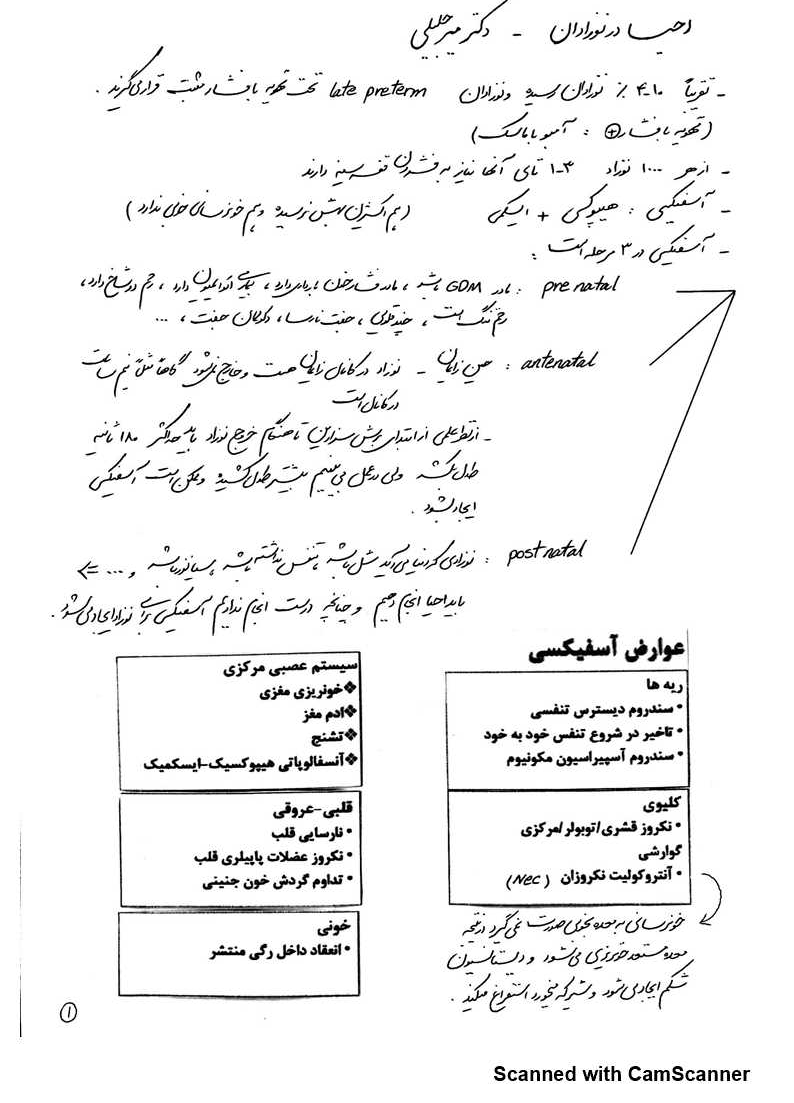 احیا در نوزادان - دکتر میرجلیلی
- تقریباً ۱۰-۴ ٪ نوزادان رسیده و نوزادان late preterm تحت تهویه با فشار مثبت قرار می گیرند .
( تهویه با فشار ⊕ : آمبو با ماسک )
- از هر ۱۰۰۰ نوزاد ۳-۱ تای آنها نیاز به فشردن قفسه سینه دارند
- آسفیکسی : هیپوکسی + ایسکمی ( هم اکسیژن بهش نرسیده و هم خونرسانی خوبی ندارد )
- آسفیکسی در ۳ مرحله است :
pre natal : مادر GDM باشد ، مادر فشار خون بارداری دارد ، پلی هیدرآمنیوس دارد ، رحم دو شاخ دارد ،
رحم تنگ است ، چند قلویی ، جفت نارسا ، دکولمان جفت ، ...
antenatal : حین زایمان - نوزاد در کانال زایمان هست و خارج نمی شود گاهاً مثلاً نیم ساعت
در کانال است
- از نظر علمی از ابتدای برش سزارین تا هنگام خروج نوزاد باید حداکثر ۱۸۰ ثانیه
طول بکشه ولی در عمل می بینیم بیشتر طول کشیده و ممکن است آسفیکسی
ایجاد بشود .
post natal : نوزادی که دنیا می آید شل باشه ، تنفس نداشته باشه ، سیانوز باشه و ... =>
باید احیا انجام دهیم و چنانچه درست انجام ندادیم آسفیکسی برای نوزاد ایجاد می شود .
عوارض آسفیکسی
ریه ها
• سندروم دیسترس تنفسی
• تاخیر در شروع تنفس خود به خود
• سندروم آسپیراسیون مکونیوم
کلیوی
• نکروز قشری/توبولر/مرکزی
گوارشی
• آنتروکولیت نکروزان (Nec)
خونرسانی به معده بخوبی صورت نمی گیرد در نتیجه
معده مستعد خونریزی می شود و دیستانسیون
شکم ایجاد می شود و شیر که میخورد استفراغ میکند .
سیستم عصبی مرکزی
❖خونریزی مغزی
❖ادم مغز
❖تشنج
❖آنسفالوپاتی هیپوکسیک-ایسکمیک
قلبی-عروقی
• نارسایی قلب
• نکروز عضلات پاپیلری قلب
• تداوم گردش خون جنینی
خونی
• انعقاد داخل رگی منتشر
۱
Scanned with CamScanner